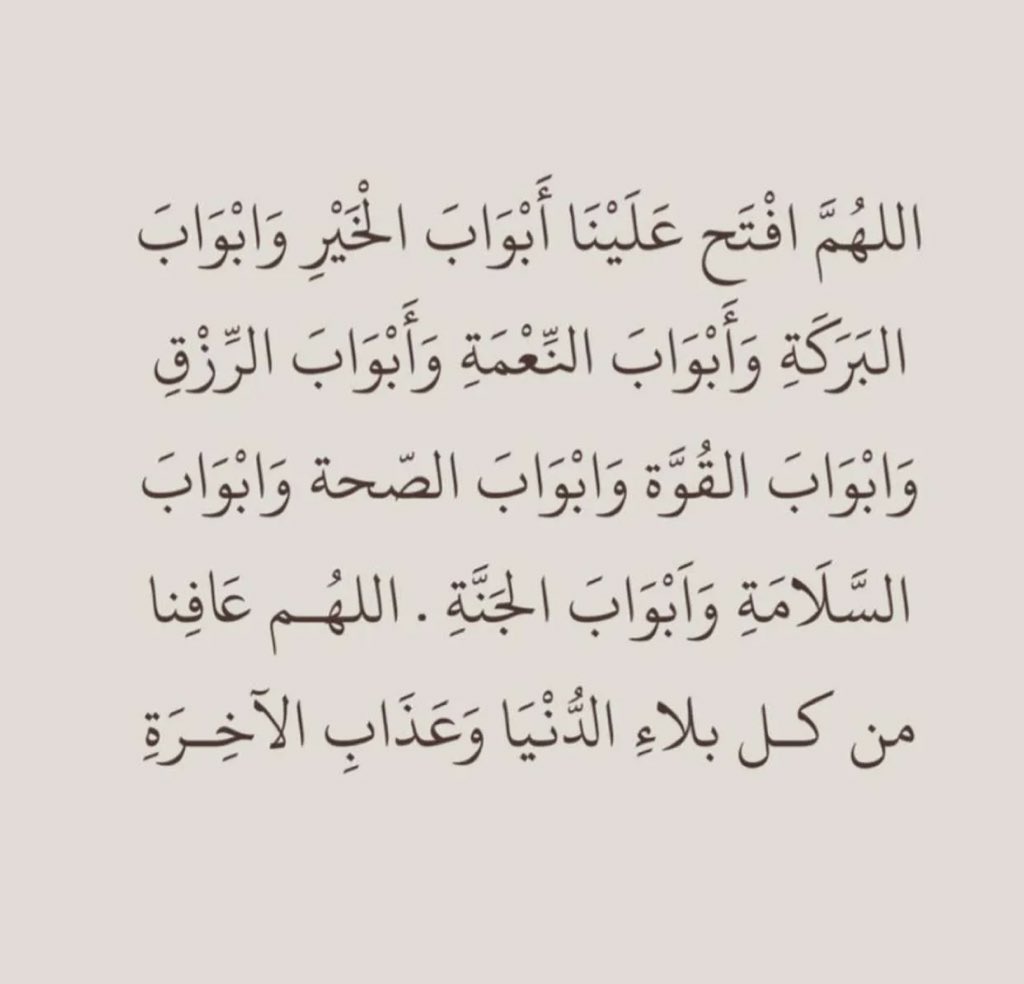 اللهُمَّ افْتَح عَلَيْنَا أَبْوَابَ الْخَيْرِ وَابْوَابَ
البَرَكَةِ وَأَبْوَابَ النِّعْمَةِ وَأَبْوَابَ الرِّزْقِ
وَابْوَابَ القُوَّة وَابْوَابَ الصّحة وَابْوَابَ
السَّلَامَةِ وَاَبْوَابَ الجَنَّةِ . اللهُـم عَافِنا
من كـل بلاءِ الدُّنْيَا وَعَذَابِ الآخِـرَةِ